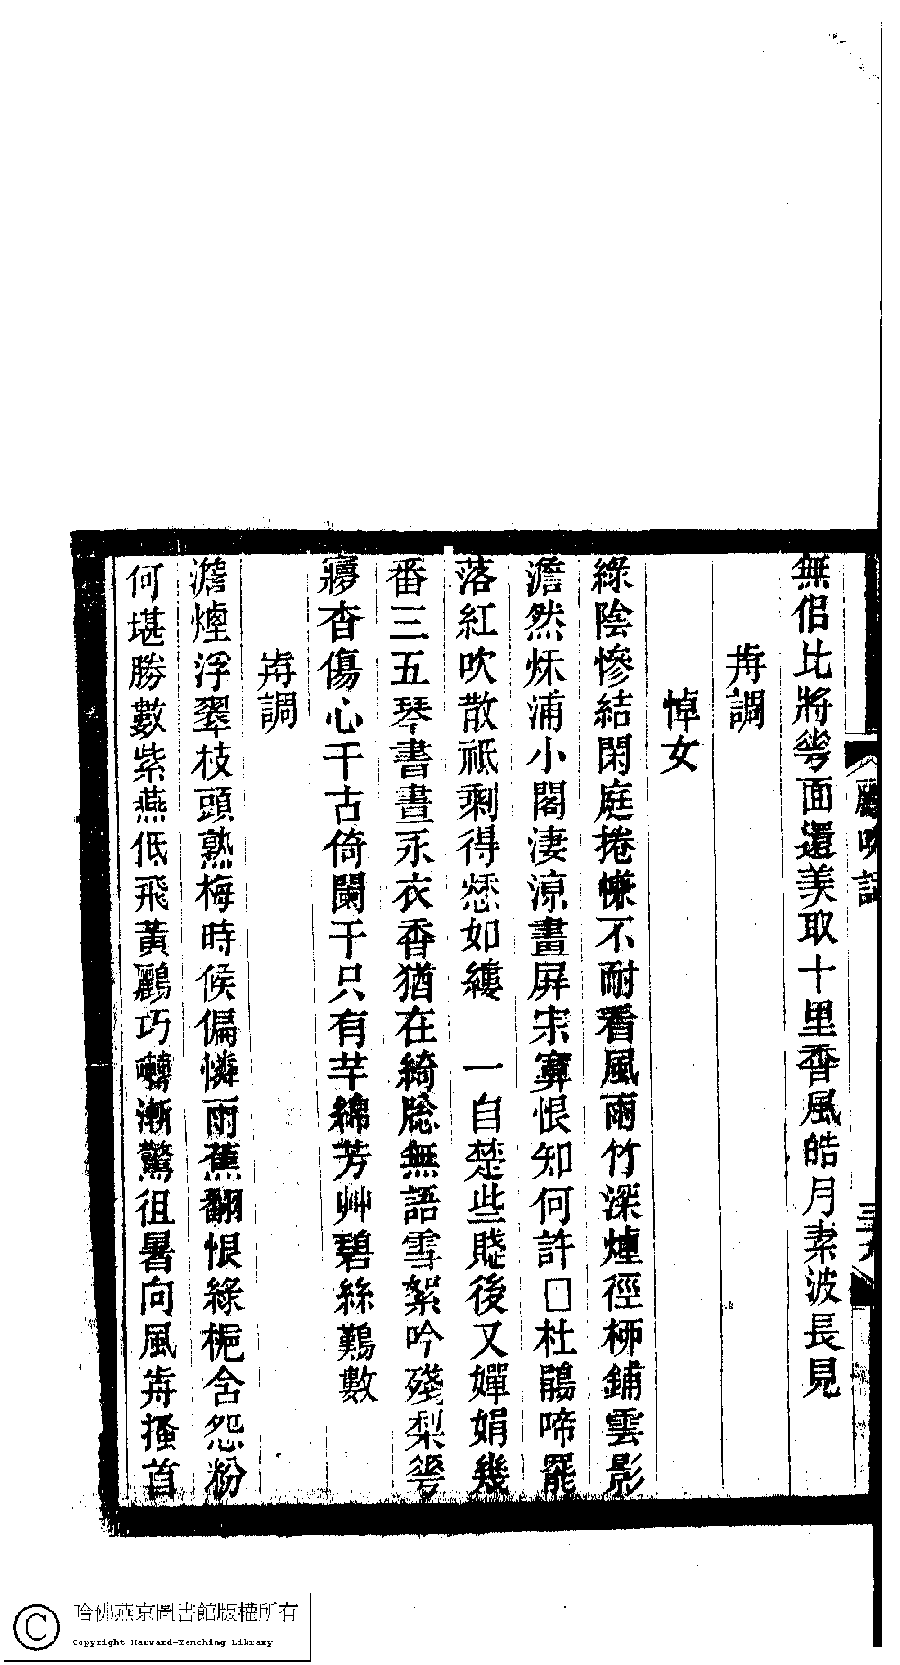 無侶比將𠌶面還羡取十里香風皓月素波長見
歬調
悼女
綠陰慘結閑庭捲㡘不耐看風雨竹深煙徑桺鋪雲影
澹然烁浦小閣淒涼畫屏宗寞恨知何許□杜鵑啼罷
落紅吹散祗剩得愁如縷　一自楚些賤後又嬋娟幾
番三五琴書晝永衣香猶在綺牕無語雪絮吟殘梨𠌶
㝱杳傷心千古倚闌干只有芊綿芳艸碧絲難數
歬調
澹煙浮翠枝頭熟梅時候偏憐雨蕉翻恨綠梔含怨粉
何堪勝數紫燕低飛黃鸝巧囀漸驚徂暑向風歬搔首
哈佛燕京圖書館版權所有
Copyright Harvard-Yenching Library